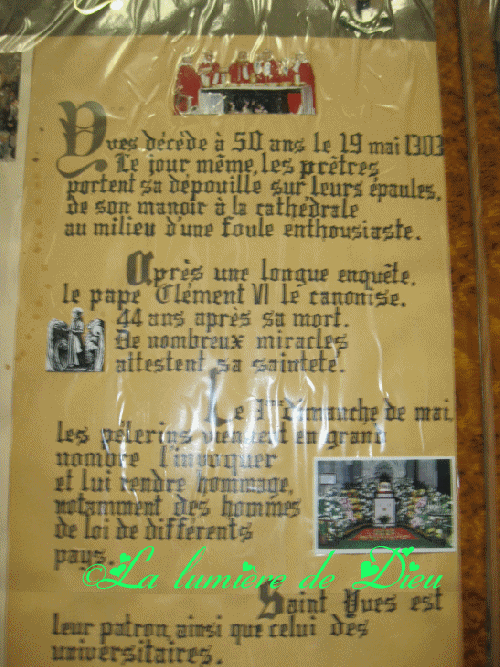 Yves décède à 50 ans le 19 mai 1303
Le jour même, les prêtres
portent sa dépouille sur leurs épaules,
de son manoir à la cathédrale
au milieu d'une foule enthousiaste.
Après une longue enquête,
le pape Clément VI le canonise,
44 ans après sa mort.
De nombreux miracles
attestent sa sainteté.
Le 3me dimanche de mai,
les pélerins viennent en grand
nombre l'invoquer
et lui rendre hommage,
notamment des hommes
de loi de différents
pays.
©La lumière de Dieu
Saint Yves est
leur patron, ainsi que celui des
universitaires.